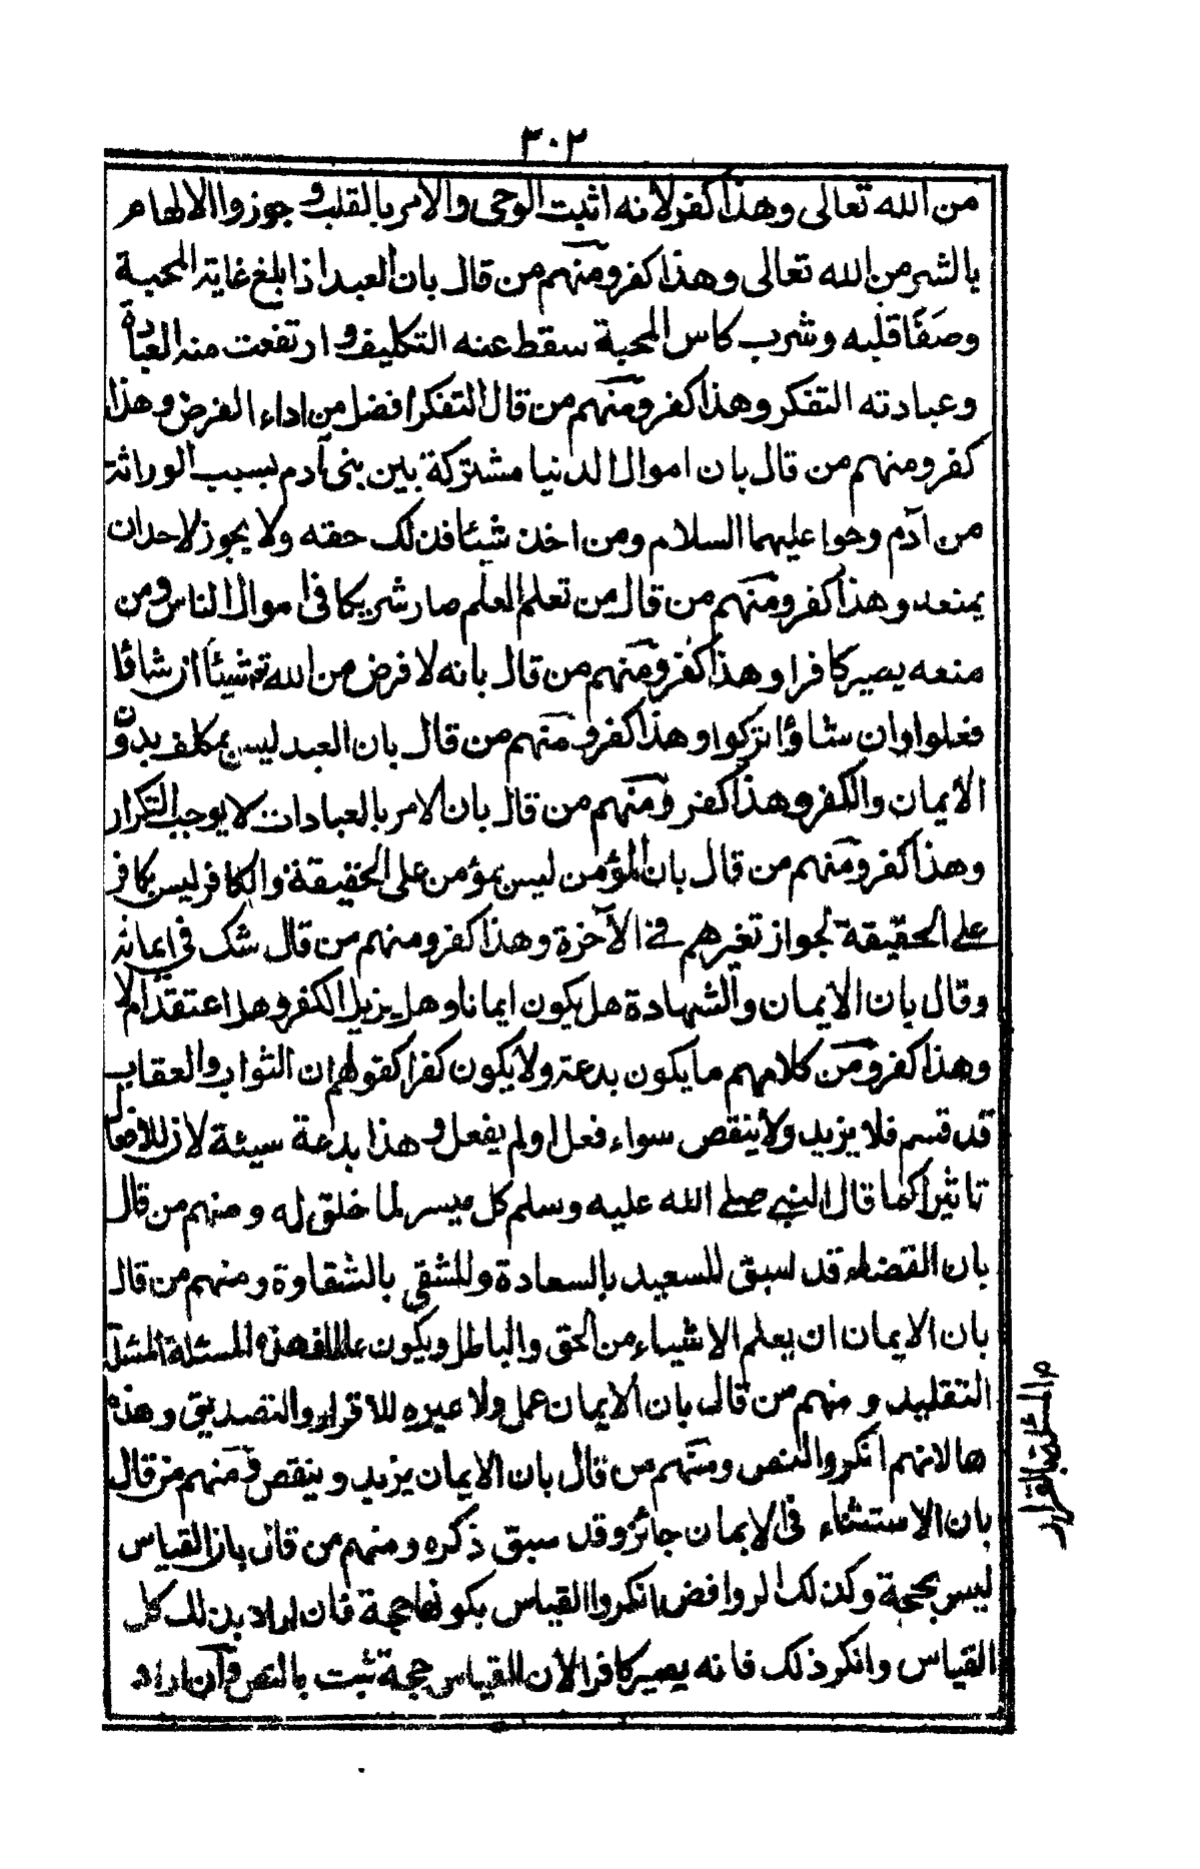 ٣٠٢
من الله تعالى وهذا كفر لانه اثبت الوحى والامر بالقلب و جوزوا الالهام
بالشر من الله تعالى وهذا كفر ومنهم من قال بان العبد اذا بلغ غاية المحبة
وصفا قلبه وشرب كاس المحبة سقط عنه التكليف و ارتفعت منه العبادة
وعبادته التفكر وهذا كفر ومنهم من قال التفكر افضل من اداء الفرض وهذا
كفر ومنهم من قال بان اموال الدنيا مشتركة بين بنى آدم بسبب الوراثة
من آدم وحوا عليهما السلام ومن اخذ شيئا فذلك حقه ولا يجوز لاحد ان
يمنعه وهذا كفر ومنهم من قال من تعلم العلم صار شريكا فى اموال الناس ومن
منعه يصير كافرا وهذا كفر ومنهم من قال بانه لا فرض من الله تع شيئا ان شاؤا
فعلوا وان شاؤا تركوا وهذا كفر و منهم من قال بان العبد ليس بمكلف بدون
الايمان والكفر وهذا كفر ومنهم من قال بان الامر بالعبادات لا يوجب التكرار
وهذا كفر ومنهم من قال بان المؤمن ليس بمؤمن على الحقيقة والكافر ليس بكافر
على الحقيقة لجواز تغيرهم فى الآخرة وهذا كفر ومنهم من قال شك فى ايمانه
وقال بان الايمان والشهادة هل يكون ايمانا وهل يزيل الكفر وهل اعتقد ام لا
وهذا كفر ومن كلامهم ما يكون بدعة ولا يكون كفرا كقولهم ان الثواب والعقاب
قد قسم فلا يزيد ولا ينقص سواء فعل او لم يفعل و هذا بدعة سيئة لان للافعال
تاثيرا كما قال النبى صلے الله عليه وسلم كل ميسر لما خلق له ومنهم من قال
بان القضاء قد سبق للسعيد بالسعادة وللشقى بالشقاوة ومنهم من قال
بان الايمان ان يعلم الاشياء من الحق والباطل ويكون هذه المسئلة
التقليد و منهم من قال بان الايمان عمل ولا عبرة للاقرار والتصديق وهذه
ها لانهم انكروا النص ومنهم من قال بان الايمان يزيد وينقص ومنهم من قال
بان الاستثناء فى الايمان جائز وقد سبق ذكره ومنهم من قال بان القياس
ليس بحجة وكذلك الروافض انكروا القياس بكونها حجة فان اراد بذلك كل
القياس وانكر ذلك فانه يصير كافرا لان القياس حجة ثبت بالنص وان اراد